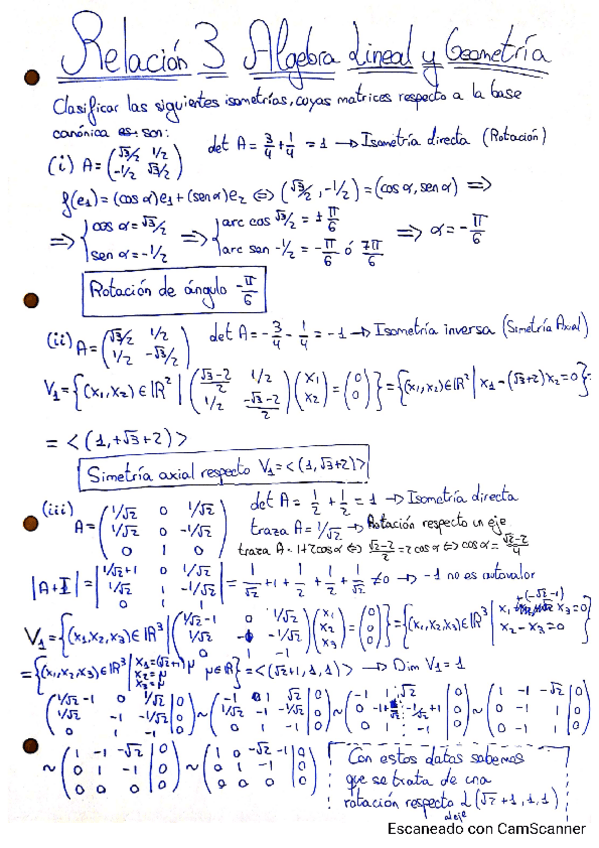 Relación 3 Álgebra Lineal y Geometría
Clasificar las siguientes isometrías, cuyas matrices respecto a la base
canónica son:
(i) A = (√3/2 1/2 ; -1/2 √3/2) det A = 3/4 + 1/4 = 1 → Isometría directa (Rotación)
f(e₁) = (cos α)e₁ + (sen α)e₂ ⇔ (√3/2, -1/2) = (cos α, sen α) ⇒
⇒ { cos α = √3/2 ; sen α = -1/2 ⇒ { arc cos √3/2 = ± π/6 ; arc sen -1/2 = -π/6 ó 7π/6 ⇒ α = -π/6
Rotación de ángulo -π/6
(ii) A = (√3/2 1/2 ; 1/2 -√3/2) det A = -3/4 - 1/4 = -1 → Isometría inversa (Simetría Axial)
V₁ = {(x₁,x₂) ∈ ℝ² | (√3-2/2 1/2 ; 1/2 -√3-2/2)(x₁ ; x₂) = (0 ; 0)} = {(x₁,x₂) ∈ ℝ² | x₁ - (√3+2)x₂ = 0} =
= <(1, +√3+2)>
Simetría axial respecto V₁ = <(1, √3+2)>
(iii) A = (1/√2 0 1/√2 ; 1/√2 0 -1/√2 ; 0 1 0) det A = 1/2 + 1/2 = 1 → Isometría directa
traza A = 1/√2 → Rotación respecto un eje
traza A = 1+2cos α ⇔ √2-2/2 = 2 cos α ⇔ cos α = √2-2/4
|A+I| = |1/√2+1 0 1/√2 ; 1/√2 1 -1/√2 ; 0 1 1| = 1/√2 + 1 + 1/2 + 1/2 + 1/√2 ≠ 0 → -1 no es autovalor
V₁ = {(x₁,x₂,x₃) ∈ ℝ³ | (1/√2-1 0 1/√2 ; 1/√2 -1 -1/√2 ; 0 1 -1)(x₁ ; x₂ ; x₃) = (0 ; 0 ; 0)} = {(x₁,x₂,x₃) ∈ ℝ³ | x₁ +(-√2-1) x₃ = 0 ; x₂ - x₃ = 0}
= {(x₁,x₂,x₃) ∈ ℝ³ | x₁ = (√2+1)μ ; x₂ = μ ; x₃ = μ μ ∈ ℝ} = <(√2+1, 1, 1)> → Dim V₁ = 1
(1/√2-1 0 1/√2 | 0 ; 1/√2 -1 -1/√2 | 0 ; 0 1 -1 | 0) ~
~ (1 -1 -√2 | 0 ; 0 1 -1 | 0 ; 0 0 0 | 0) ~ (1 0 -√2-1 | 0 ; 0 1 -1 | 0 ; 0 0 0 | 0)
Con estos datos sabemos
que se trata de una
rotación respecto al eje L(√2+1, 1, 1)
Escaneado con CamScanner